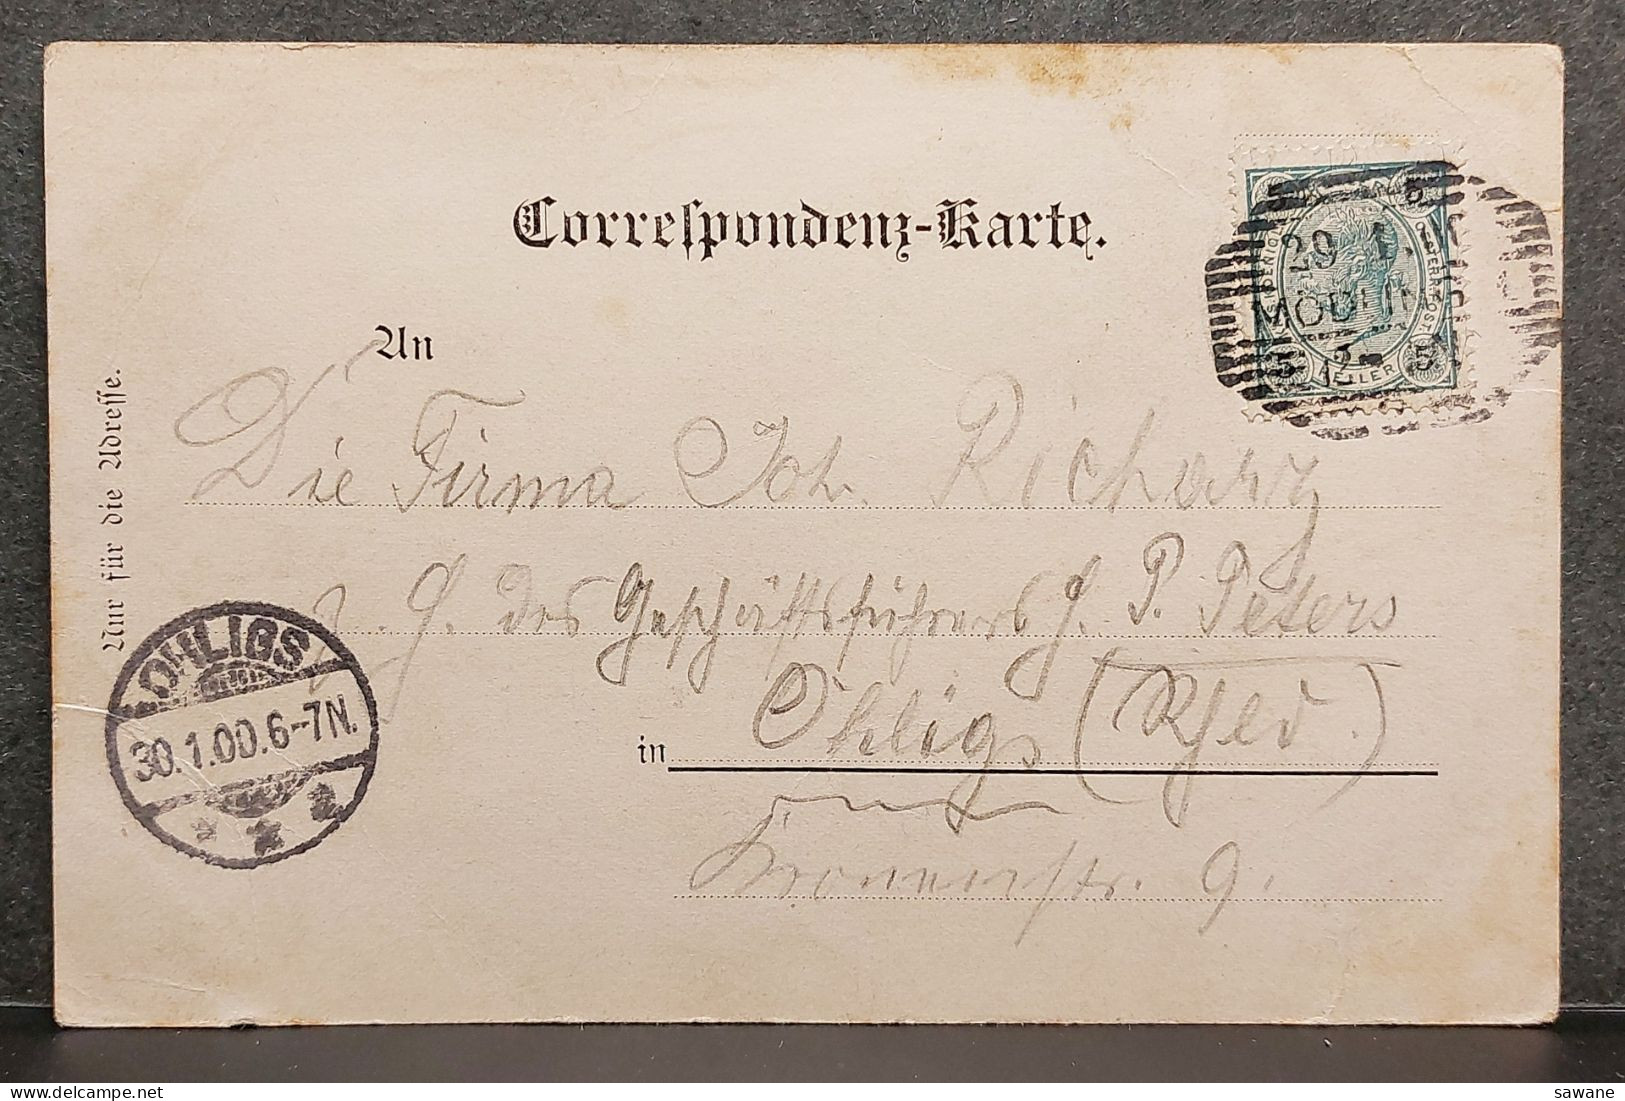 Correspondenz-Karte.
An
Nur für die Adresse.
Die Firma Joh. Richarz
z. H. des Geschäftsführers H. P. Peters
in Ohligs (Rhld.)
Kronenstr. 9.
OHLIGS
30.1.00.6-7N.
29 1.
MÖDLING
5 5
5 5
HELLER
OESTERR. POST
sawane